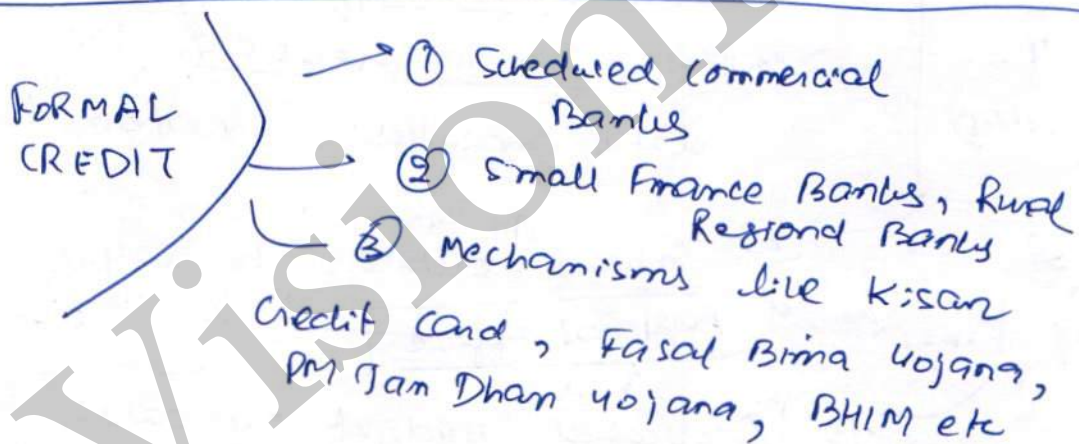 FORMAL
CREDIT
① Scheduled Commercial
Banks
② Small Finance Banks, Rural
Regional Banks
③ Mechanisms like Kisan
Credit Card, Fasal Bima Yojana,
PM Jan Dhan Yojana, BHIM etc
Vision